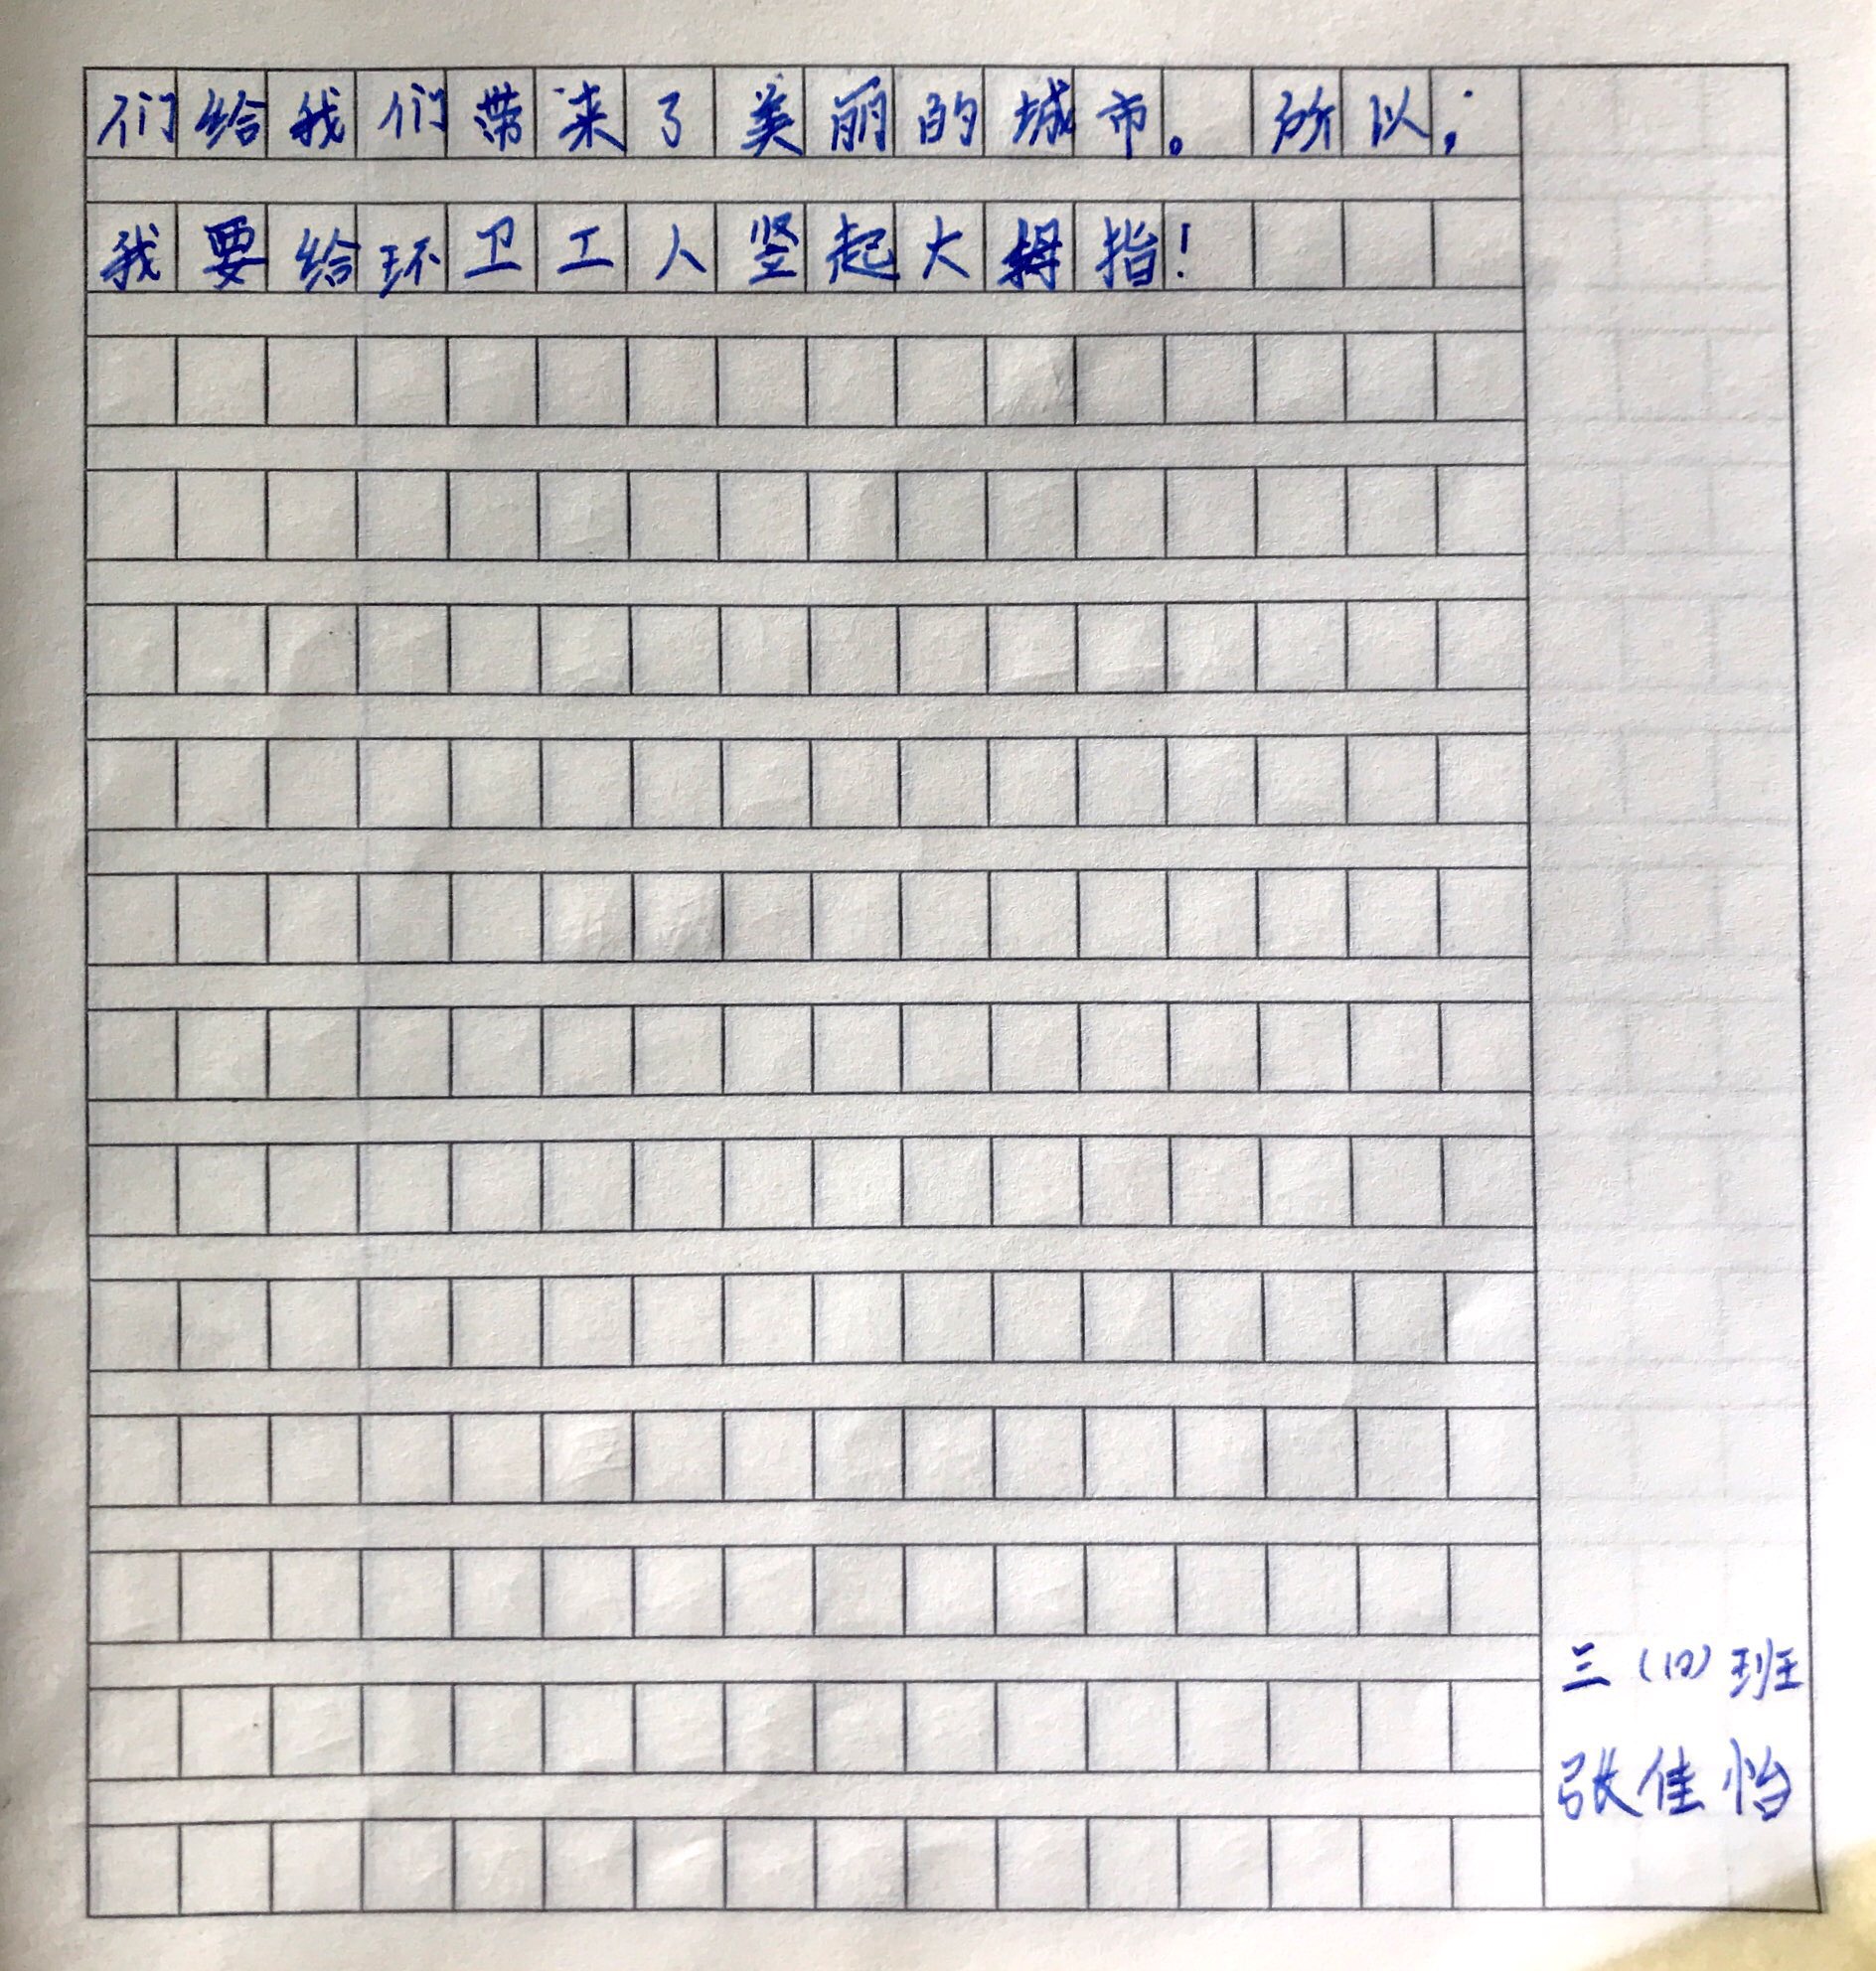 们给我们带来了美丽的城市。所以，
我要给环卫工人竖起大拇指！
三（10）班
张佳怡